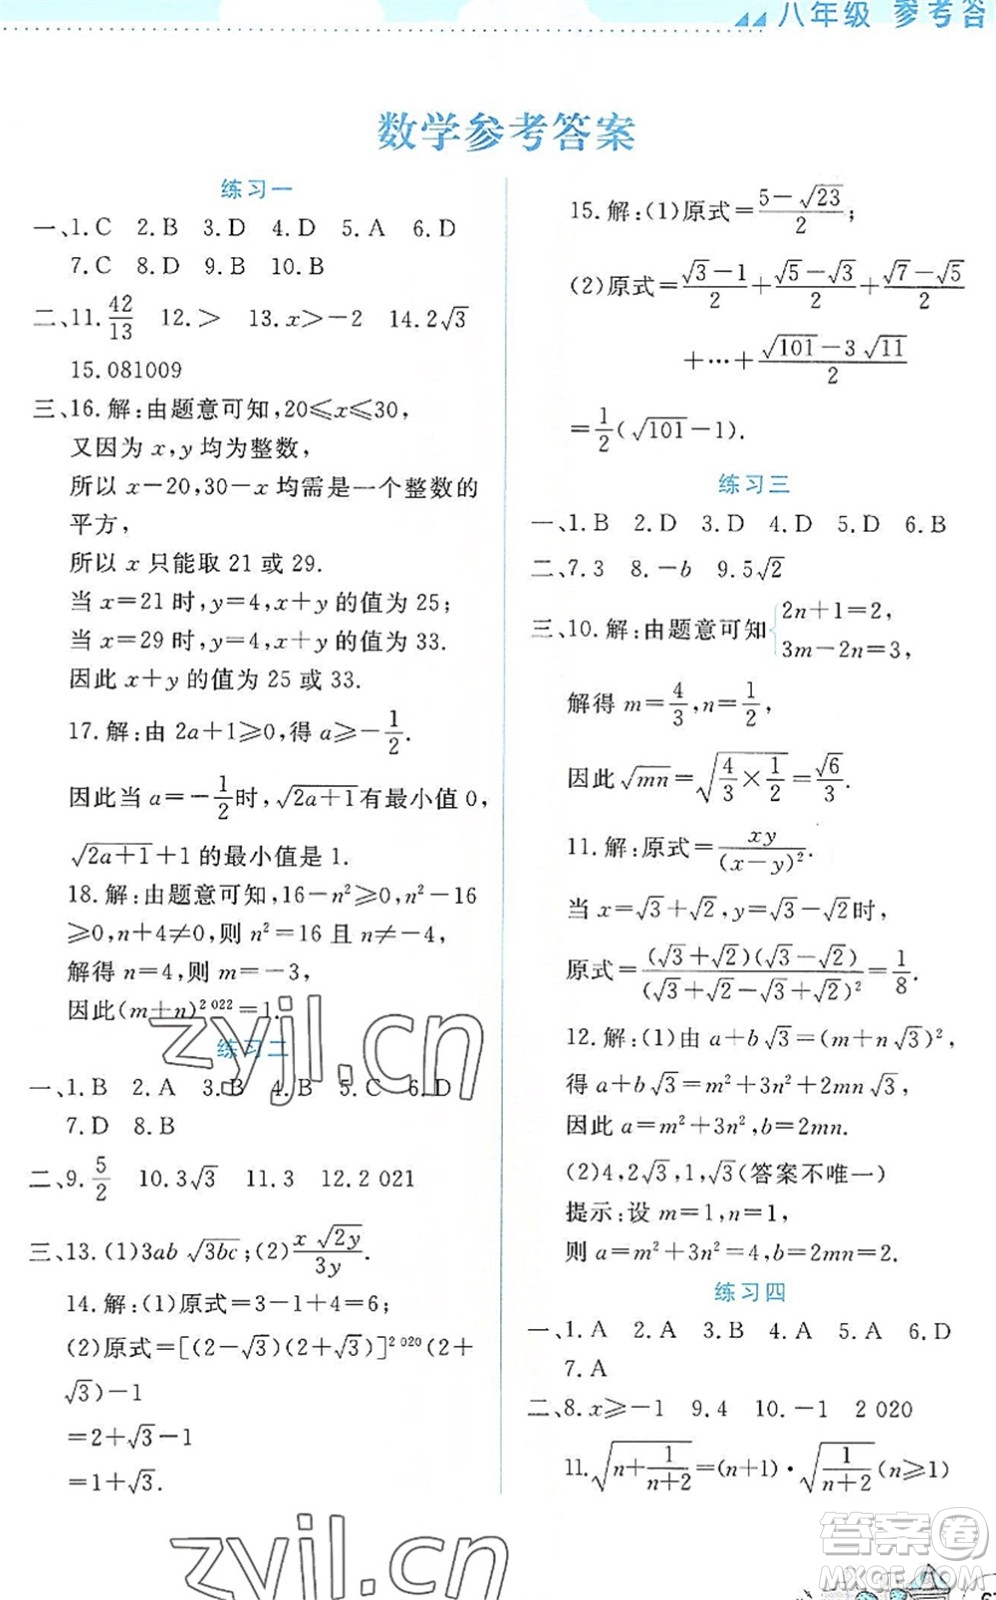 八年级 参考答
数学参考答案
练习一
一、1.C 2.B 3.D 4.D 5.A 6.D
7.C 8.D 9.B 10.B
二、11.42/13 12.> 13.x>-2 14.2√3
15.081009
三、16.解:由题意可知,20≤x≤30,
又因为 x,y 均为整数,
所以 x-20,30-x 均需是一个整数的
平方,
所以 x 只能取 21 或 29.
当 x=21 时,y=4,x+y 的值为 25;
当 x=29 时,y=4,x+y 的值为 33.
因此 x+y 的值为 25 或 33.
17.解:由 2a+1≥0,得 a≥-1/2.
因此当 a=-1/2时,√(2a+1)有最小值 0,
√(2a+1)+1 的最小值是 1.
18.解:由题意可知,16-n²≥0,n²-16
≥0,n+4≠0,则 n²=16 且 n≠-4,
解得 n=4,则 m=-3,
因此(m+n)^2 022=1.
练习二
一、1.B 2.A 3.B 4.B 5.C 6.D
7.D 8.B
二、9.5/2 10.3√3 11.3 12.2 021
三、13.(1)3ab√(3bc);(2)x√(2y)/3y.
14.解:(1)原式=3-1+4=6;
(2)原式=[(2-√3)(2+√3)]^2 020(2+
√3)-1
=2+√3-1
=1+√3.
15.解:(1)原式=(5-√23)/2;
(2)原式=(√3-1)/2+(√5-√3)/2+(√7-√5)/2
+…+(√101-3√11)/2
=1/2(√101-1).
练习三
一、1.B 2.D 3.D 4.D 5.D 6.B
二、7.3 8.-b 9.5√2
三、10.解:由题意可知{2n+1=2,
3m-2n=3,
解得 m=4/3,n=1/2,
因此√(mn)=√(4/3×1/2)=√6/3.
11.解:原式=xy/(x-y)².
当 x=√3+√2,y=√3-√2时,
原式=(√3+√2)(√3-√2)/(√3+√2-√3+√2)²=1/8.
12.解:(1)由 a+b√3=(m+n√3)²,
得 a+b√3=m²+3n²+2mn√3,
因此 a=m²+3n²,b=2mn.
(2)4,2√3,1,√3(答案不唯一)
提示:设 m=1,n=1,
则 a=m²+3n²=4,b=2mn=2.
练习四
一、1.A 2.A 3.B 4.A 5.A 6.D
7.A
二、8.x≥-1 9.4 10.-1 2 020
11.√(n+1/(n+2))=(n+1)·√(1/(n+2))(n≥1)
zyjl.cn
zyjl.cn
答案卷
MXQE.COM